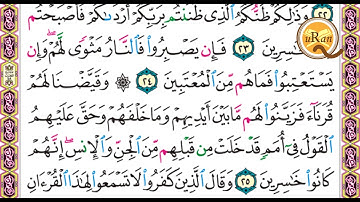 ٢٢ وَذَٰلِكُمْ ظَنُّكُمُ الَّذِى ظَنَنتُم بِرَبِّكُمْ أَرْدَىٰكُمْ فَأَصْبَحْتُم
uRan
مِّنَ الْخَٰسِرِينَ ٢٣ فَإِن يَصْبِرُوا۟ فَالنَّارُ مَثْوًى لَّهُمْ ۖ وَإِن
يَسْتَعْتِبُوا۟ فَمَا هُم مِّنَ الْمُعْتَبِينَ ٢٤ ۞ وَقَيَّضْنَا لَهُمْ
قُرَنَآءَ فَزَيَّنُوا۟ لَهُم مَّا بَيْنَ أَيْدِيهِمْ وَمَا خَلْفَهُمْ وَحَقَّ عَلَيْهِمُ
الْقَوْلُ فِىٓ أُمَمٍ قَدْ خَلَتْ مِن قَبْلِهِم مِّنَ الْجِنِّ وَالْإِنسِ ۖ إِنَّهُمْ
كَانُوا۟ خَٰسِرِينَ ٢٥ وَقَالَ الَّذِينَ كَفَرُوا۟ لَا تَسْمَعُوا۟ لِهَٰذَا الْقُرْءَانِ